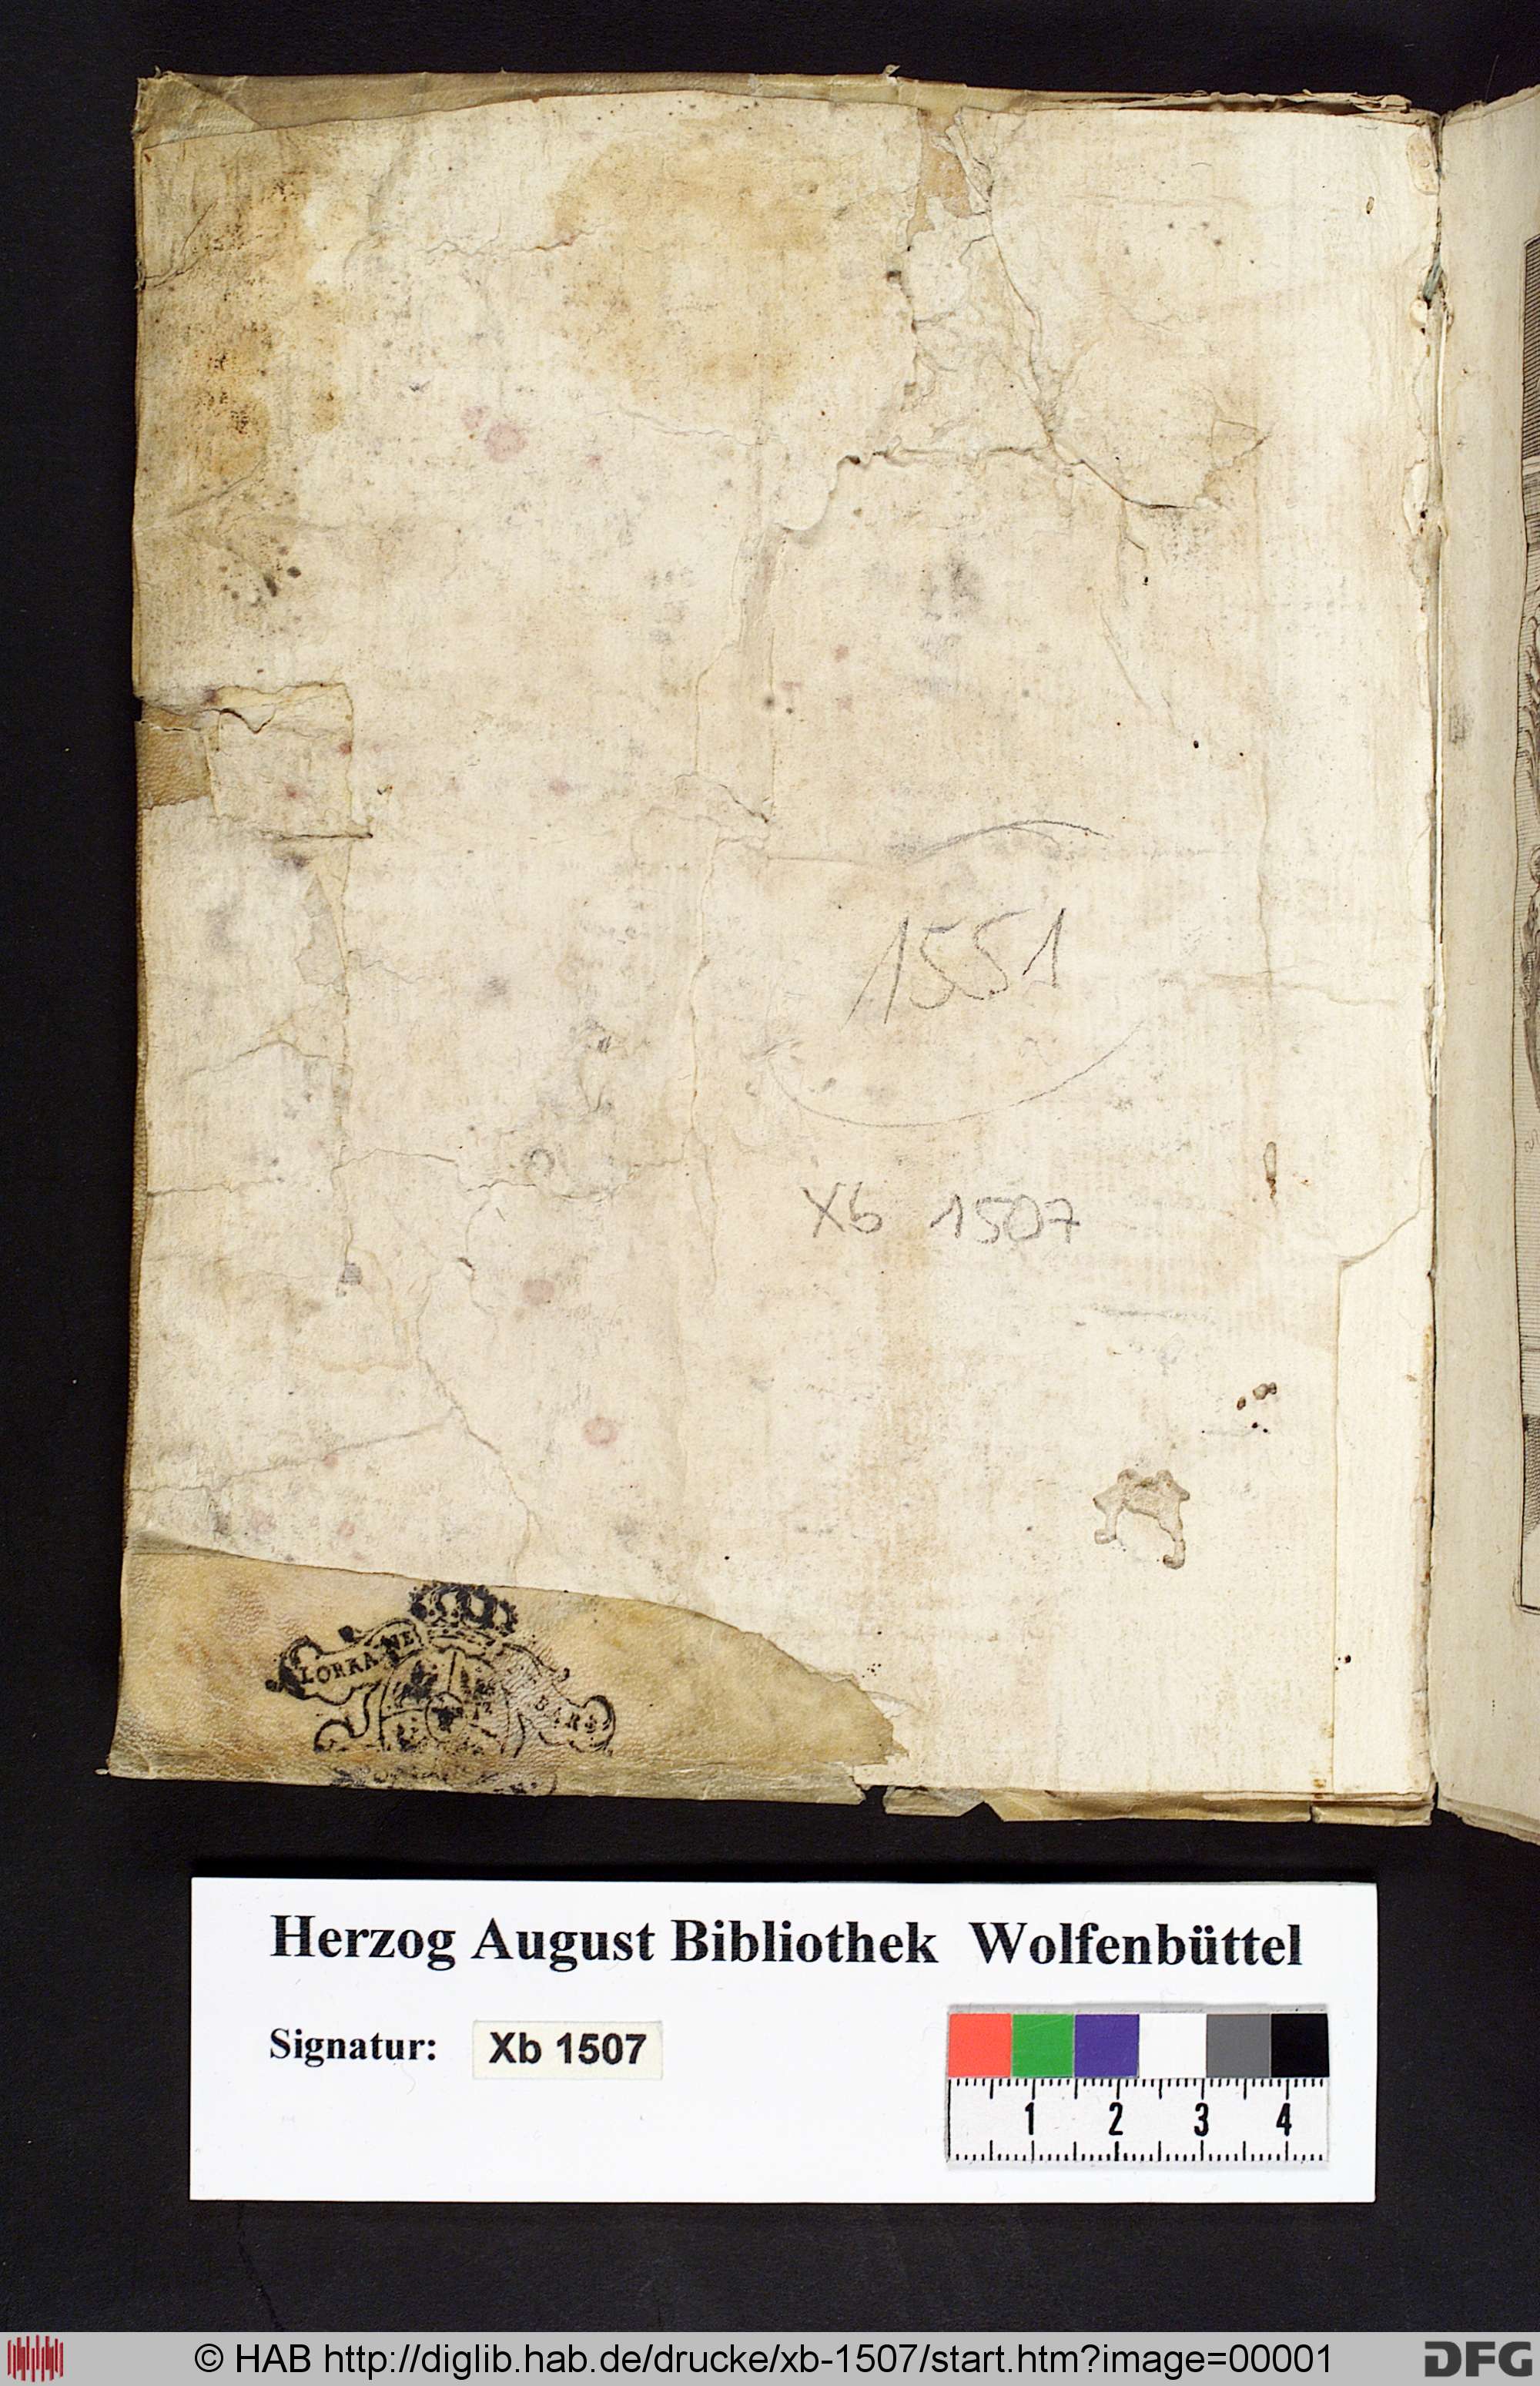 1551
Xb 1507
LORRAINE
BAR
Herzog August Bibliothek Wolfenbüttel
Signatur: Xb 1507
1 2 3 4
© HAB http://diglib.hab.de/drucke/xb-1507/start.htm?image=00001
DFG